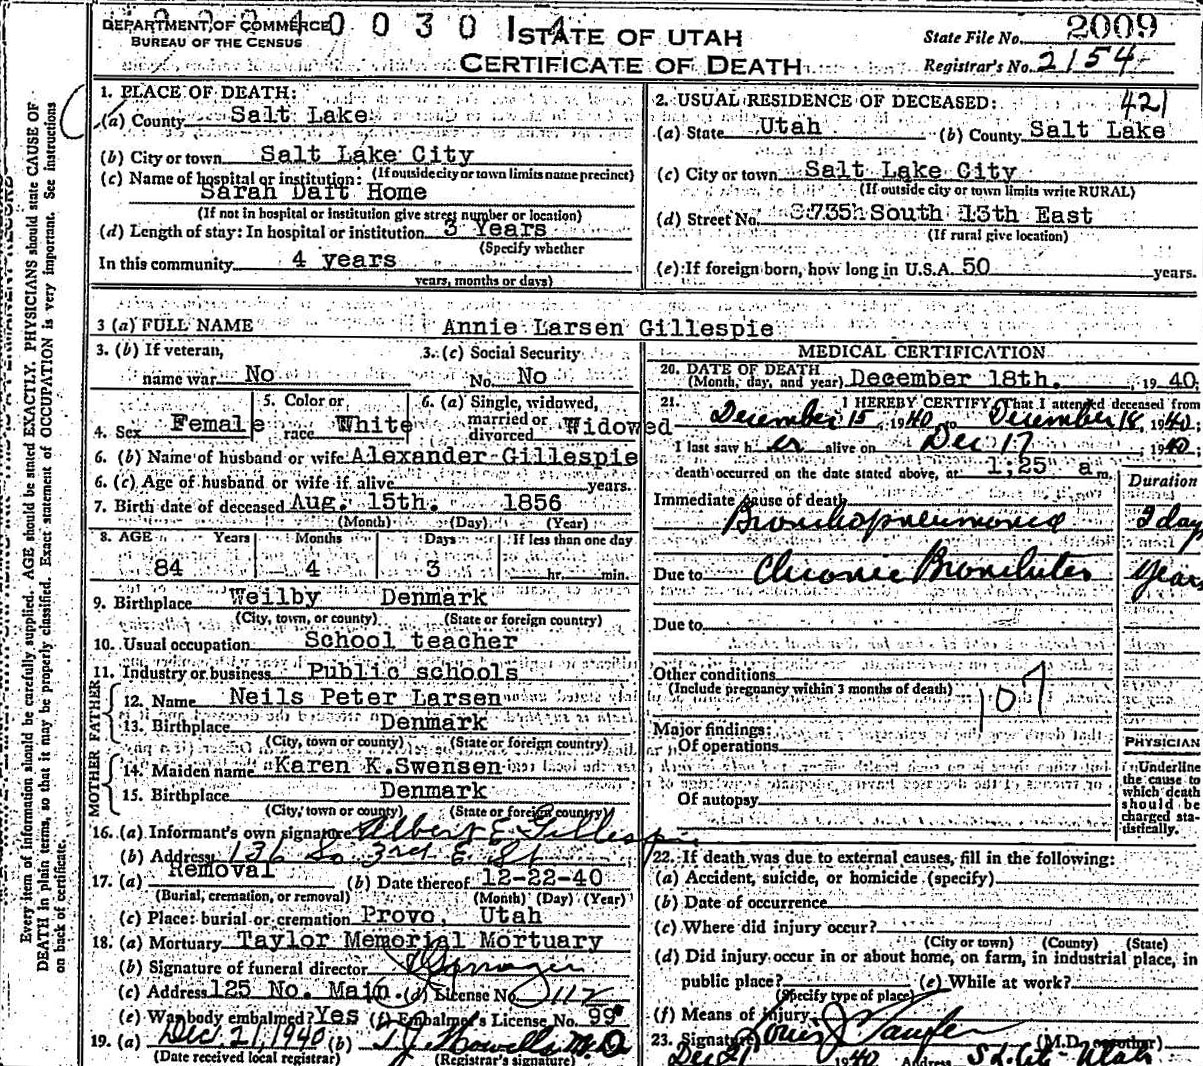 DEPARTMENT OF COMMERCE
BUREAU OF THE CENSUS
0 0 3 0
STATE OF UTAH
CERTIFICATE OF DEATH
State File No. 2009
Registrar's No. 2154
1. PLACE OF DEATH:
(a) County Salt Lake
(b) City or town Salt Lake City
(If outside city or town limits name precinct)
(c) Name of hospital or institution:
Sarah Daft Home
(If not in hospital or institution give street number or location)
(d) Length of stay: In hospital or institution 3 Years
(Specify whether
In this community 4 years
years, months or days)
2. USUAL RESIDENCE OF DECEASED: 421
(a) State Utah (b) County Salt Lake
(c) City or town Salt Lake City
(If outside city or town limits write RURAL)
(d) Street No. 735 South 13th East
(If rural give location)
(e) If foreign born, how long in U.S.A. 50 years.
3 (a) FULL NAME Annie Larsen Gillespie
3. (b) If veteran,
name war No
3. (c) Social Security
No. No
4. Sex Female
5. Color or
race White
6. (a) Single, widowed,
married or
divorced Widowed
6. (b) Name of husband or wife Alexander Gillespie
6. (c) Age of husband or wife if alive years.
7. Birth date of deceased Aug. 15th. 1856
(Month) (Day) (Year)
8. AGE Years Months Days If less than one day
84 4 3 hr. min.
9. Birthplace Weilby Denmark
(City, town, or county) (State or foreign country)
10. Usual occupation School teacher
11. Industry or business Public schools
FATHER
12. Name Neils Peter Larsen
13. Birthplace Denmark
(City, town or county) (State or foreign country)
MOTHER
14. Maiden name Karen K.Swensen
15. Birthplace Denmark
(City, town or county) (State or foreign country)
16. (a) Informant's own signature Albert E Gillespie
(b) Address 136 So 3rd E. St
17. (a) Removal (b) Date thereof 12-22-40
(Burial, cremation, or removal) (Month) (Day) (Year)
(c) Place: burial or cremation Provo, Utah
18. (a) Mortuary Taylor Memorial Mortuary
(b) Signature of funeral director
(c) Address 125 No. Main. (d) License No. 112
(e) Was body embalmed? Yes (f) Embalmer's License No. 99
19. (a) Dec. 21, 1940 (b) T J Howells M.D
(Date received local registrar) (Registrar's signature)
MEDICAL CERTIFICATION
20. DATE OF DEATH
(Month, day, and year) December 18th. , 19 40
21. I HEREBY CERTIFY, That I attended deceased from
December 15, 1940 to December 18, 1940;
I last saw her alive on Dec 17, 1940;
death occurred on the date stated above, at 1:25 a m.
Duration
Immediate cause of death
Bronchopneumonia 3 days
Due to Chronic Bronchitis Years
Due to
Other conditions
(Include pregnancy within 3 months of death) 107
Major findings:
Of operations
Of autopsy
PHYSICIAN
Underline
the cause to
which death
should be
charged sta-
tistically.
22. If death was due to external causes, fill in the following:
(a) Accident, suicide, or homicide (specify)
(b) Date of occurrence
(c) Where did injury occur?
(City or town) (County) (State)
(d) Did injury occur in or about home, on farm, in industrial place, in
public place? (e) While at work?
(Specify type of place)
(f) Means of injury
23. Signature Louis J (M.D. or other)
Dec 21 1940 Address S L City Utah
Every item of information should be carefully supplied. AGE should be stated EXACTLY. PHYSICIANS should state CAUSE OF
DEATH in plain terms, so that it may be properly classified. Exact statement of OCCUPATION is very important. See instructions
on back of certificate.